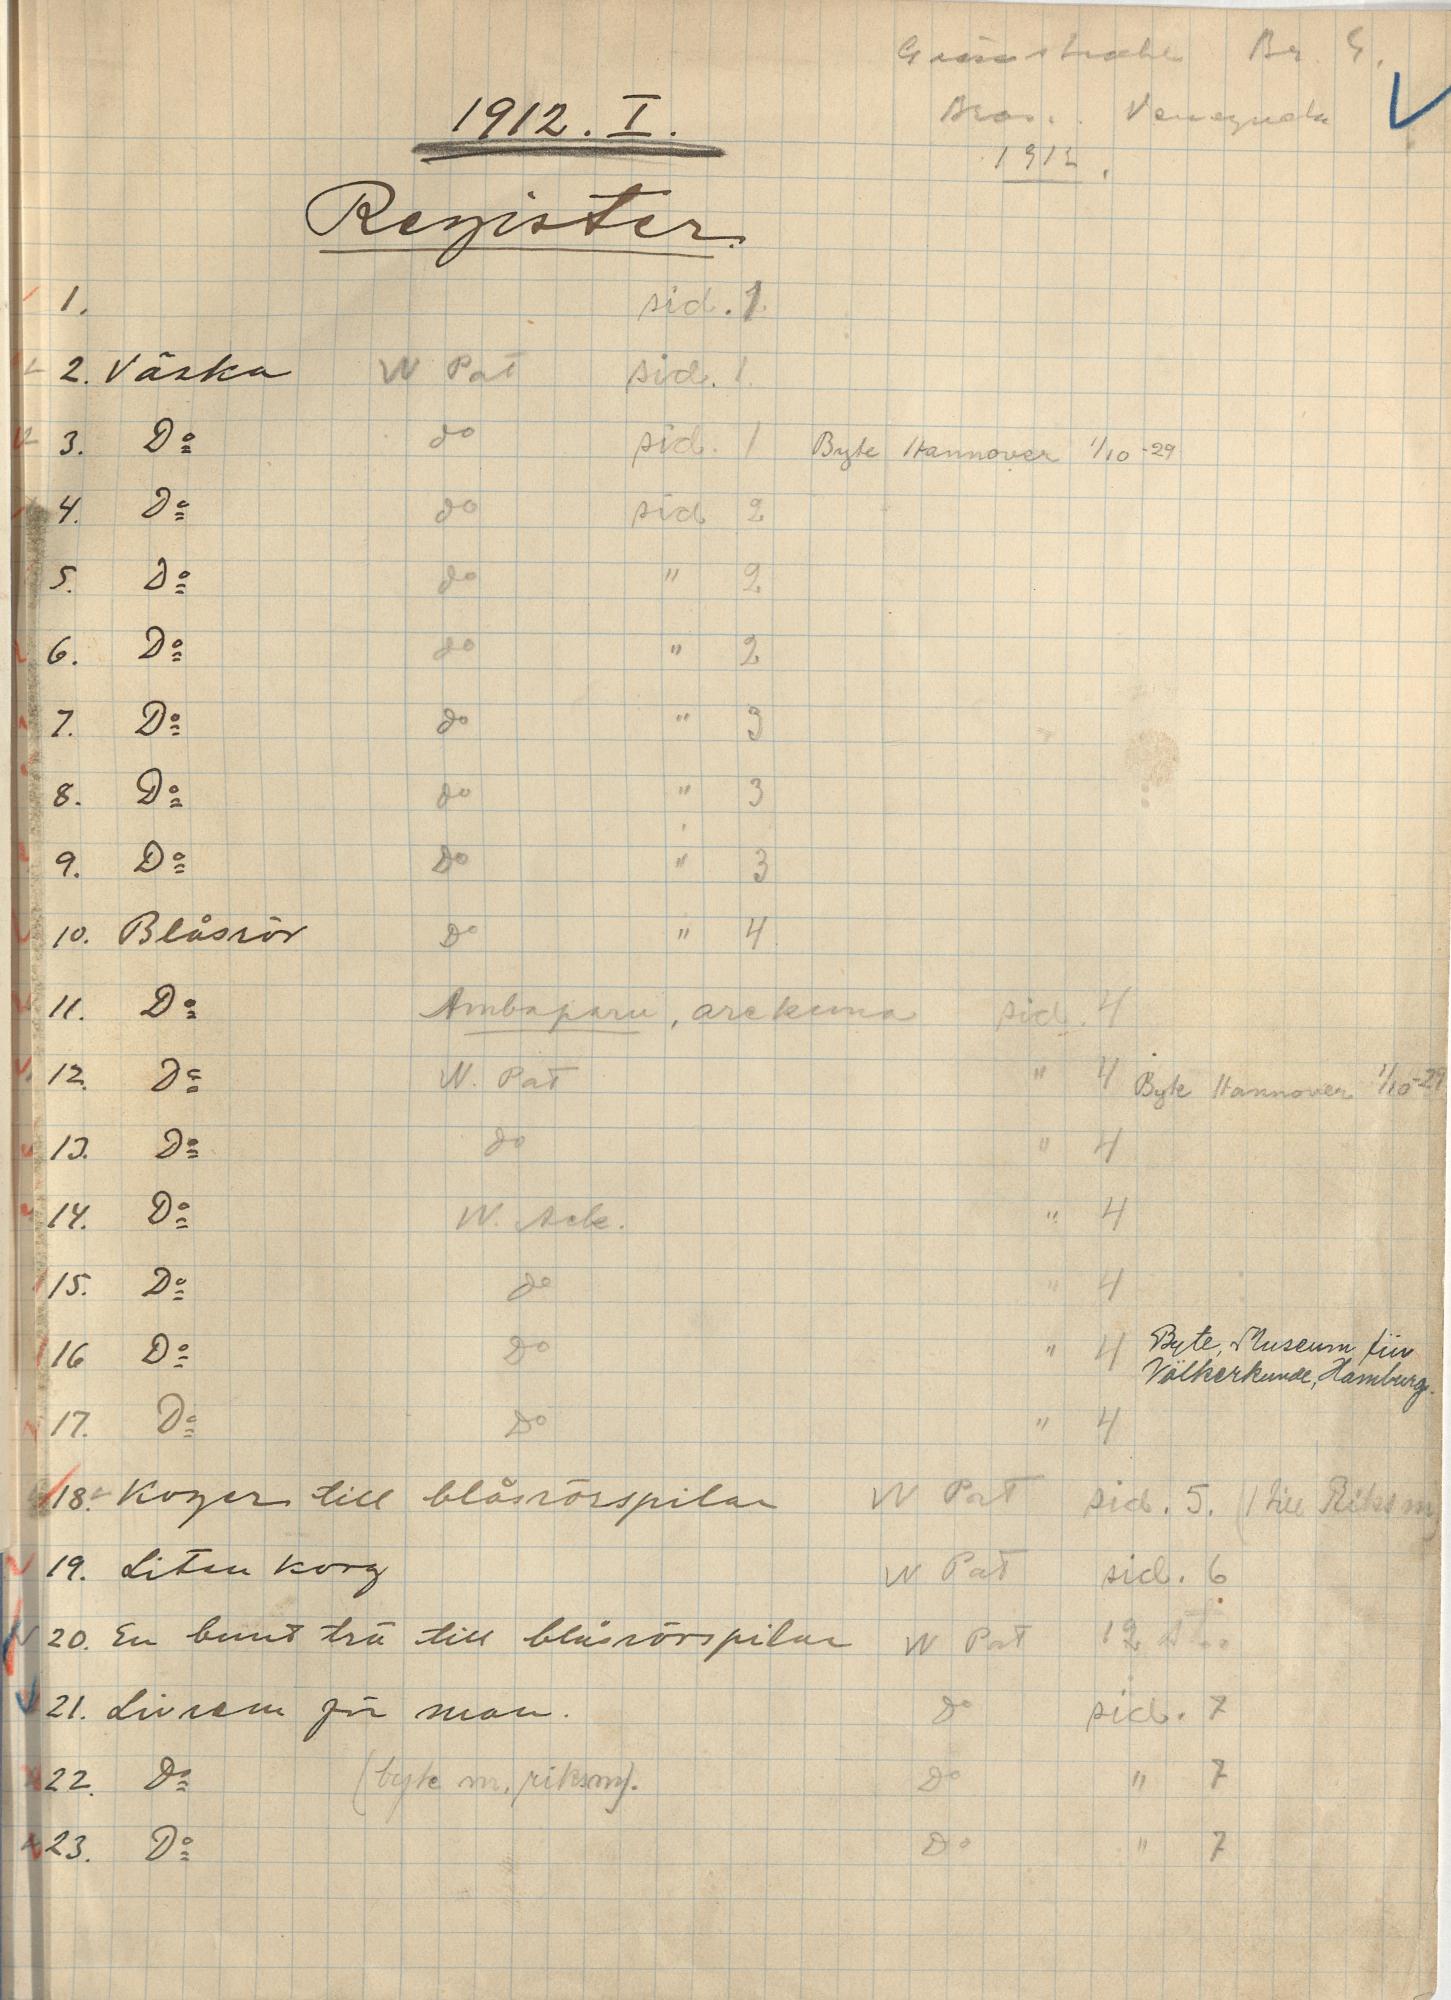 Br. G.
Bras. Venezuela
1912.
1912. I.
Register.
1. sid. 1.
2. Väska W Pat sid. 1.
3. Do do sid. 1 Byte Hannover 1/10-29
4. Do do sid 2
5. Do do " 2
6. Do do " 2
7. Do do " 3
8. Do do " 3
9. Do Do " 3
10. Blåsrör Do " 4
11. Do Ambaparu, arekuna sid. 4
12. Do W. Pat " 4 Byte Hannover 1/10-29
13. Do do " 4
14. Do W. " 4
15. Do do " 4
16 Do Do " 4 Byte, Museum für
Völkerkunde, Hamburg.
17. Do Do " 4
18. Koger till blåsrörspilar W Pat sid. 5. (1 till Riksm)
19. Liten korg W Pat sid. 6
20. En bunt trä till blåsrörspilar W Pat 12 st..
21. Livrem för man. do sid. 7
22. Do (byte m. riksm). Do " 7
23. Do Do " 7